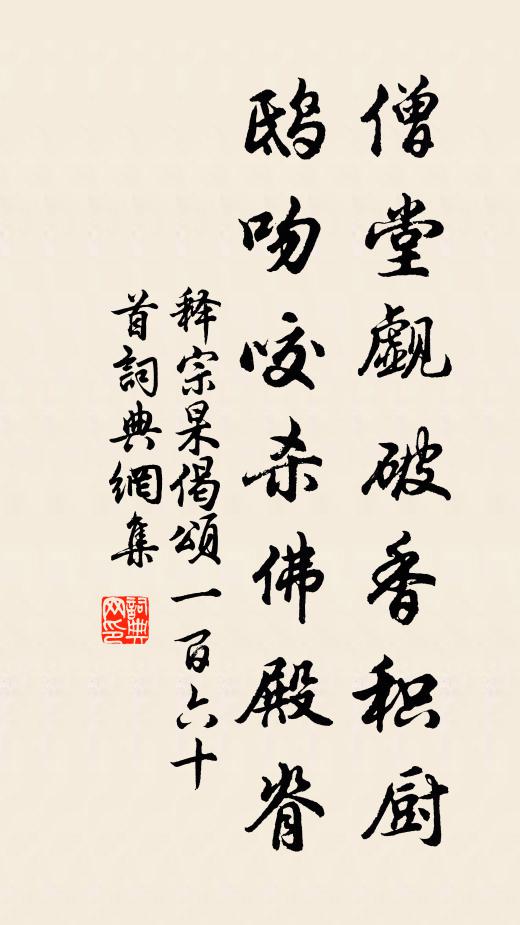 僧堂觑破香积厨
鸱吻咬杀佛殿脊
释宗杲偈頌一百六十
首詞典網集
詞典网印